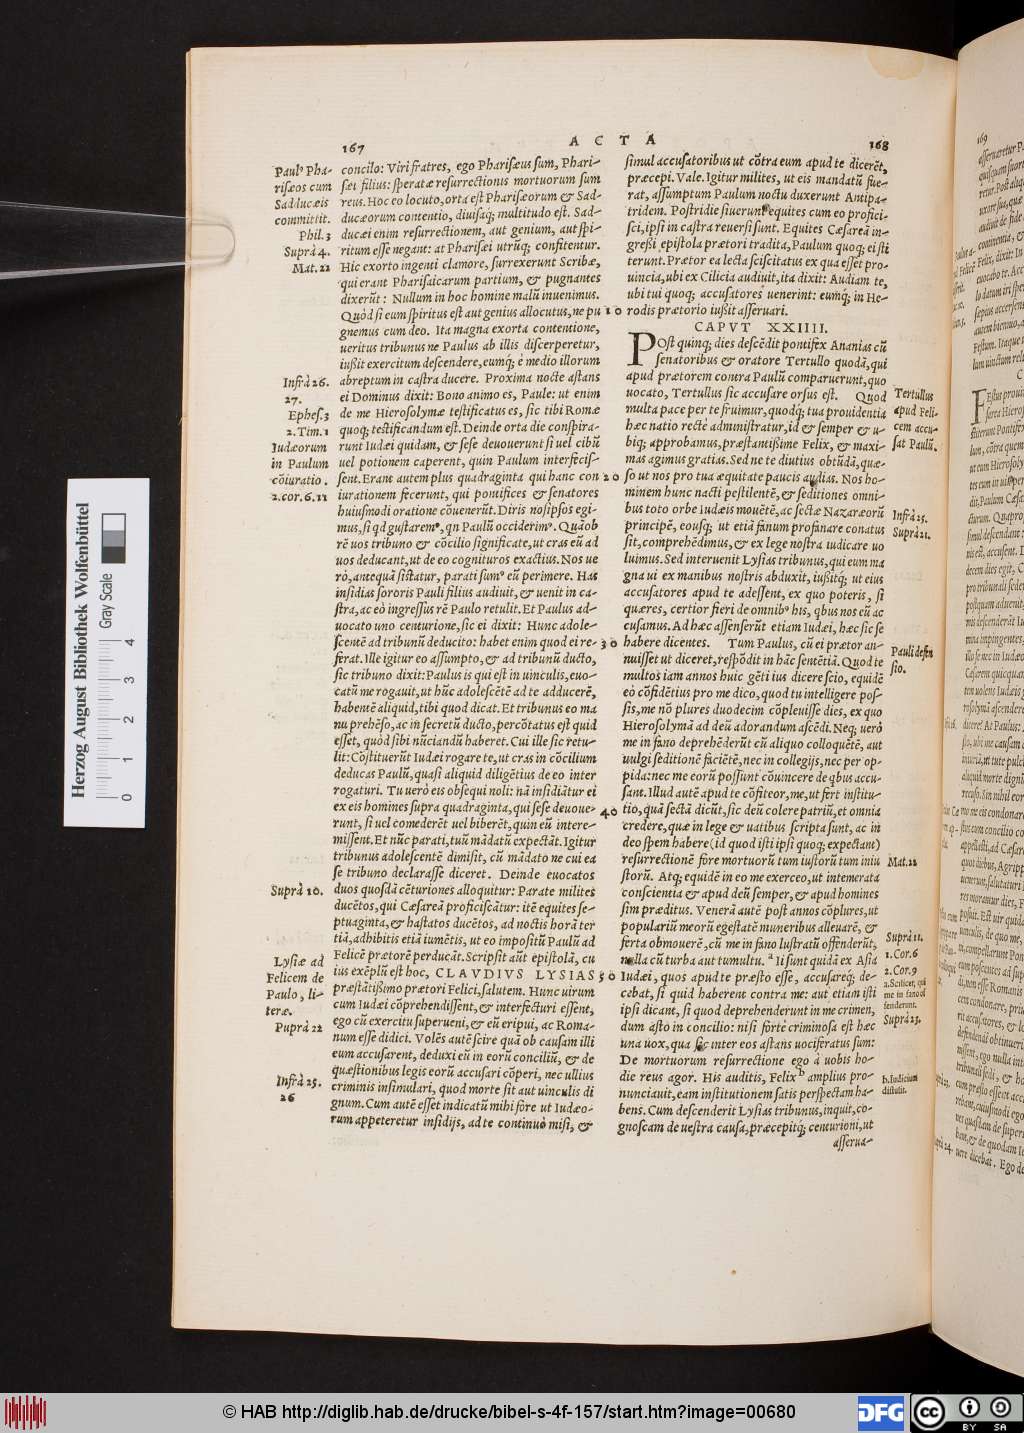 167
ACTA
168
Paulꝰ Pha-
risæos cum
Sadducæis
committit.
Phil. 3
Suprà 4.
Mat. 22
concilo: Viri fratres, ego Pharisæus sum, Phari-
sæi filius: speratæ resurrectionis mortuorum sum
reus. Hoc eo locuto, orta est Pharisæorum & Sad-
ducæorum contentio, diuisaq́; multitudo est. Sad-
ducæi enim resurrectionem, aut genium, aut spi-
ritum esse negant: at Pharisæi utrūq; confitentur.
Hic exorto ingenti clamore, surrexerunt Scribæ,
qui erant Pharisaicarum partium, & pugnantes
dixerūt: Nullum in hoc homine malū inuenimus.
Quòd si eum spiritus est aut genius allocutus, ne pu
gnemus cum deo. Ita magna exorta contentione,
ueritus tribunus ne Paulus ab illis discerperetur,
iußit exercitum descendere, eumq́; è medio illorum
abreptum in castra ducere. Proxima nocte astans
ei Dominus dixit: Bono animo es, Paule: ut enim
de me Hierosolymæ testificatus es, sic tibi Romæ
quoq; testificandum est. Deinde orta die conspira-
runt Iudæi quidam, & sese deuouerunt si uel cibū
uel potionem caperent, quin Paulum interfecis-
sent. Erant autem plus quadraginta qui hanc con
iurationem fecerunt, qui pontifices & senatores
huiusmodi oratione cōuenerūt. Diris nosipsos egi-
mus, si qd gustaremꝰ, qn Paulū occiderimꝰ. Quāob
rē uos tribuno & cōcilio significate, ut cras eū ad
uos deducant, ut de eo cognituros exactius. Nos ue
rò, antequā sistatur, parati sumꝰ eū perimere. Has
insidias sororis Pauli filius audiuit, & uenit in ca-
stra, ac eò ingressus rē Paulo retulit. Et Paulus ad-
uocato uno centurione, sic ei dixit: Hunc adole-
scentē ad tribunū deducito: habet enim quod ei re-
ferat. Ille igitur eo assumpto, & ad tribunū ducto,
sic tribuno dixit: Paulus is qui est in uinculis, euo-
catū me rogauit, ut hūc adolescētē ad te adducerē,
habentē aliquid, tibi quod dicat. Et tribunus eo ma
nu prehēso, ac in secretū ducto, percōtatus est quid
esset, quòd sibi nūciandū haberet. Cui ille sic retu-
lit: Cōstituerūt Iudæi rogare te, ut cras in cōcilium
deducas Paulū, quasi aliquid diligētius de eo inter
rogaturi. Tu uerò eis obsequi noli: nā insidiātur ei
ex eis homines supra quadraginta, qui sese deuoue-
runt, si uel comederēt uel biberēt, quin eū intere-
missent. Et nūc parati, tuū mādatū expectāt. Igitur
tribunus adolescentē dimisit, cū mādato ne cui ea
se tribuno declarasse diceret. Deinde euocatos
duos quosdā cēturiones alloquitur: Parate milites
ducētos, qui Cæsareā proficiscātur: itē equites se-
ptuaginta, & hastatos ducētos, ad noctis horā ter
tiā, adhibitis etiā iumētis, ut eo impositū Paulū ad
Felicē prætorē perducāt. Scripsit aūt epistolā, cu
ius exēplū est hoc, CLAVDIVS LYSIAS
præstātißimo prætori Felici, salutem. Hunc uirum
cum Iudæi cōprehendissent, & interfecturi essent,
ego cū exercitu superueni, & eū eripui, ac Roma-
num esse didici. Volēs autē scire quā ob causam illi
eum accusarent, deduxi eū in eorū conciliū, & de
quæstionibus legis eorū accusari cōperi, nec ullius
criminis insimulari, quod morte sit aut uinculis di
gnum. Cum autē esset indicatū mihi fore ut Iudæo-
rum appeteretur insidijs, ad te continuò misi, &
Infrà 26.
27.
Ephes. 3
2. Tim. 1
Iudæorum
in Paulum
cōiuratio.
2. cor. 6. 11
Suprà 10.
Lysiæ ad
Felicem de
Paulo, li-
teræ.
Puprà 22
Infrà 25.
26
10
20
30
40
50
simul accusatoribus ut cōtra eum apud te dicerēt,
præcepi. Vale. Igitur milites, ut eis mandatū fue-
rat, assumptum Paulum noctu duxerunt Antipa-
tridem. Postridie siuerunt equites cum eo profici-
sci, ipsi in castra reuersi sunt. Equites Cæsareā in-
greßi epistola prætori tradita, Paulum quoq; ei sti
terunt. Prætor ea lecta sciscitatus ex qua esset pro-
uincia, ubi ex Cilicia audiuit, ita dixit: Audiam te,
ubi tui quoq; accusatores uenerint: eumq́; in He-
rodis prætorio iußit asseruari.
CAPVT XXIIII.
POst quinq; dies descēdit pontifex Ananias cū
senatoribus & oratore Tertullo quodā, qui
apud prætorem contra Paulū comparuerunt, quo
uocato, Tertullus sic accusare orsus est. Quod
multa pace per te fruimur, quodq́; tua prouidentia
hæc natio rectè administratur, id & semper & u-
biq; approbamus, præstantißime Felix, & maxi-
mas agimus gratias. Sed ne te diutius obtūdā, quæ-
so ut nos pro tua æquitate paucis audias. Nos ho-
minem hunc nacti pestilentē, & seditiones omni-
bus toto orbe Iudæis mouētē, ac sectæ Nazaræorū
principē, eousq; ut etiā fanum profanare conatus
sit, comprehēdimus, & ex lege nostra iudicare uo
luimus. Sed interuenit Lysias tribunus, qui eum ma
gna ui ex manibus nostris abduxit, iußitq́; ut eius
accusatores apud te adessent, ex quo poteris, si
quæres, certior fieri de omnibꝰ his, qbus nos eū ac
cusamus. Ad hæc assenserūt etiam Iudæi, hæc sic se
habere dicentes. Tum Paulus, cū ei prætor an-
nuisset ut diceret, respōdit in hāc sentētiā. Quod te
multos iam annos huic gēti ius dicere scio, equidē
eò cōfidētius pro me dico, quod tu intelligere pos-
sis, me nō plures duodecim cōpleuisse dies, ex quo
Hierosolymā ad deū adorandum ascēdi. Neq; uerò
me in fano deprehēderūt cū aliquo colloquētē, aut
uulgi seditionē faciētē, nec in collegijs, nec per op-
pida: nec me eorū possunt cōuincere de qbus accu-
sant. Illud autē apud te cōfiteor, me, ut fert institu-
tio, quā sectā dicūt, sic deū colere patriū, et omnia
credere, quæ in lege & uatibus scripta sunt, ac in
deo spem habere (id quod isti ipsi quoq; expectant)
resurrectionē fore mortuorū tum iustorū tum iniu
storū. Atq; equidē in eo me exerceo, ut intemerata
conscientia & apud deū semper, & apud homines
sim præditus. Venerā autē post annos cōplures, ut
populariū meorū egestatē muneribus alleuarē, &
ferta obmouerē, cū me in fano lustratū offenderūt,
nulla cū turba aut tumultu. ª Ii sunt quidā ex Asia
Iudæi, quos apud te præsto esse, accusareq́; de-
cebat, si quid haberent contra me: aut etiam isti
ipsi dicant, si quod deprehenderunt in me crimen,
dum asto in concilio: nisi fortè criminosa est hæc
una uox, qua sic inter eos astans uociferatus sum:
De mortuorum resurrectione ego à uobis ho-
die reus agor. His auditis, Felix ᵇ amplius pro-
nunciauit, eam institutionem satis perspectam ha-
bens. Cum descenderit Lysias tribunus, inquit, co-
gnoscam de uestra causa, præcepitq́; centurioni, ut
asserua-
Tertullus
apud Feli-
cem accu-
sat Paulū.
Infrà 25.
Suprà 21.
Pauli defen
sio.
Mat. 22
Suprà 11.
1. Cor. 6
2. Cor. 9
a. Scilicet, qui
me in fano of
fenderunt.
Suprà 23.
b. Iudicium
distulit.
Herzog August Bibliothek Wolfenbüttel
Gray Scale
0 1 2 3 4
© HAB http://diglib.hab.de/drucke/bibel-s-4f-157/start.htm?image=00680
DFG
cc
BY SA